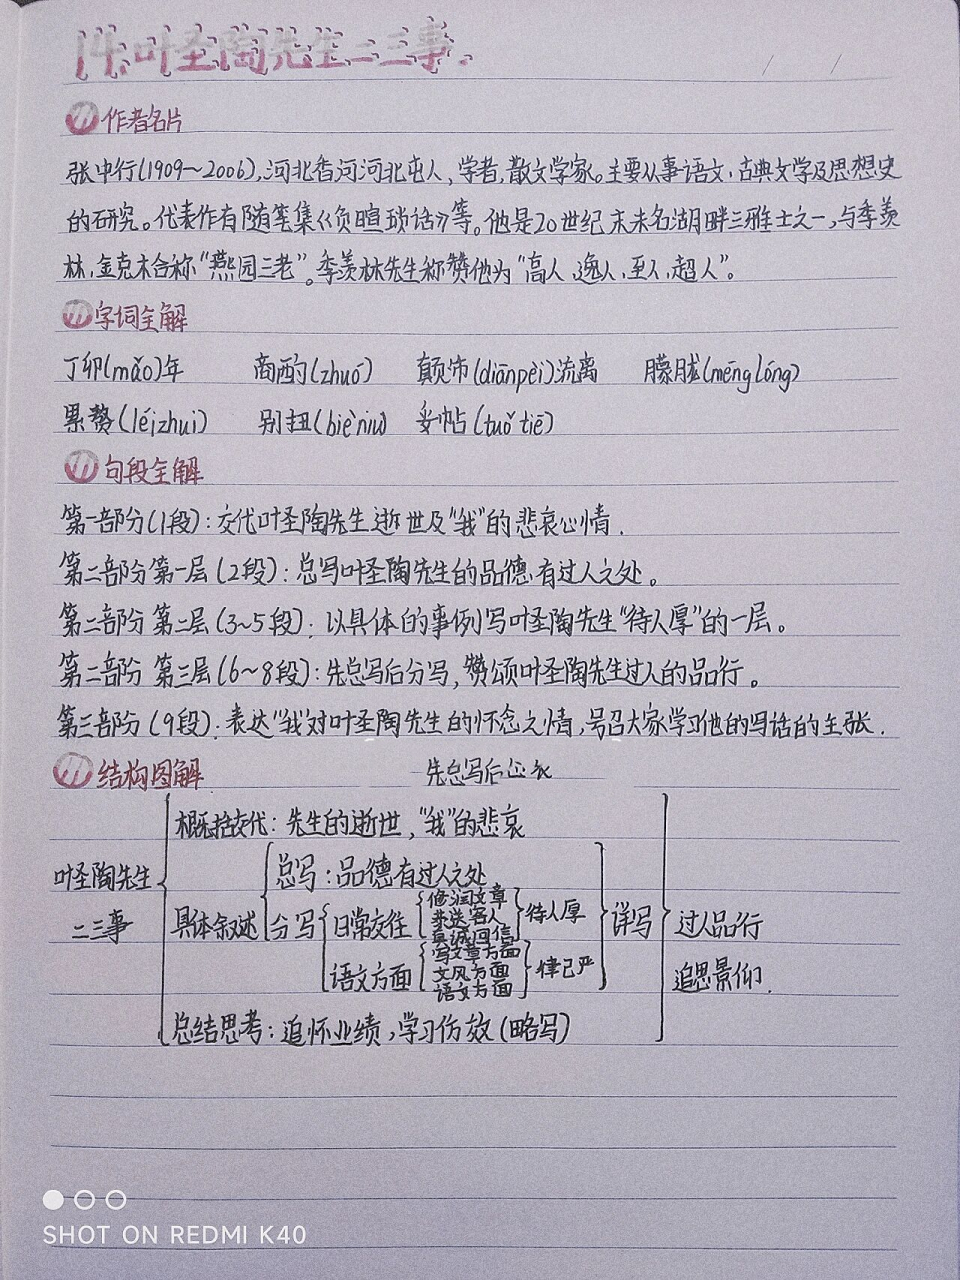 14.叶圣陶先生二三事.
/ /
作者名片
张中行(1909~2006),河北香河河北屯人,学者,散文学家。主要从事语文,古典文学及思想史
的研究。代表作有随笔集《负暄琐话》等。他是20世纪末未名湖畔三雅士之一,与季羡
林,金克木合称“燕园三老”。季羡林先生称赞他为“高人、逸人、至人、超人”。
字词全解
丁卯(mǎo)年 商酌(zhuó) 颠沛(diānpèi)流离 朦胧(ménglóng)
累赘(léizhui) 别扭(bièniu) 妥帖(tuǒtiē)
句段全解
第一部分(1段):交代叶圣陶先生逝世及“我”的悲哀心情.
第二部分第一层(2段):总写叶圣陶先生的品德有过人之处。
第二部分 第二层(3~5段):以具体的事例写叶圣陶先生“待人厚”的一层。
第二部分 第三层(6~8段):先总写后分写,赞颂叶圣陶先生过人的品行。
第三部分(9段):表达“我”对叶圣陶先生的怀念之情,号召大家学习他的写话的主张.
结构图解
先总写后
概括交代:先生的逝世,“我”的悲哀
叶圣陶先生
二三事
具体叙述
总写:品德有过人之处
分写
日常交往
修润文章
送客人
真诚回信
待人厚
语文方面
写文章方面
文风方面
语文方面
律己严
详写
过人品行
追思景仰.
总结思考:追怀业绩,学习仿效(略写)
SHOT ON REDMI K40